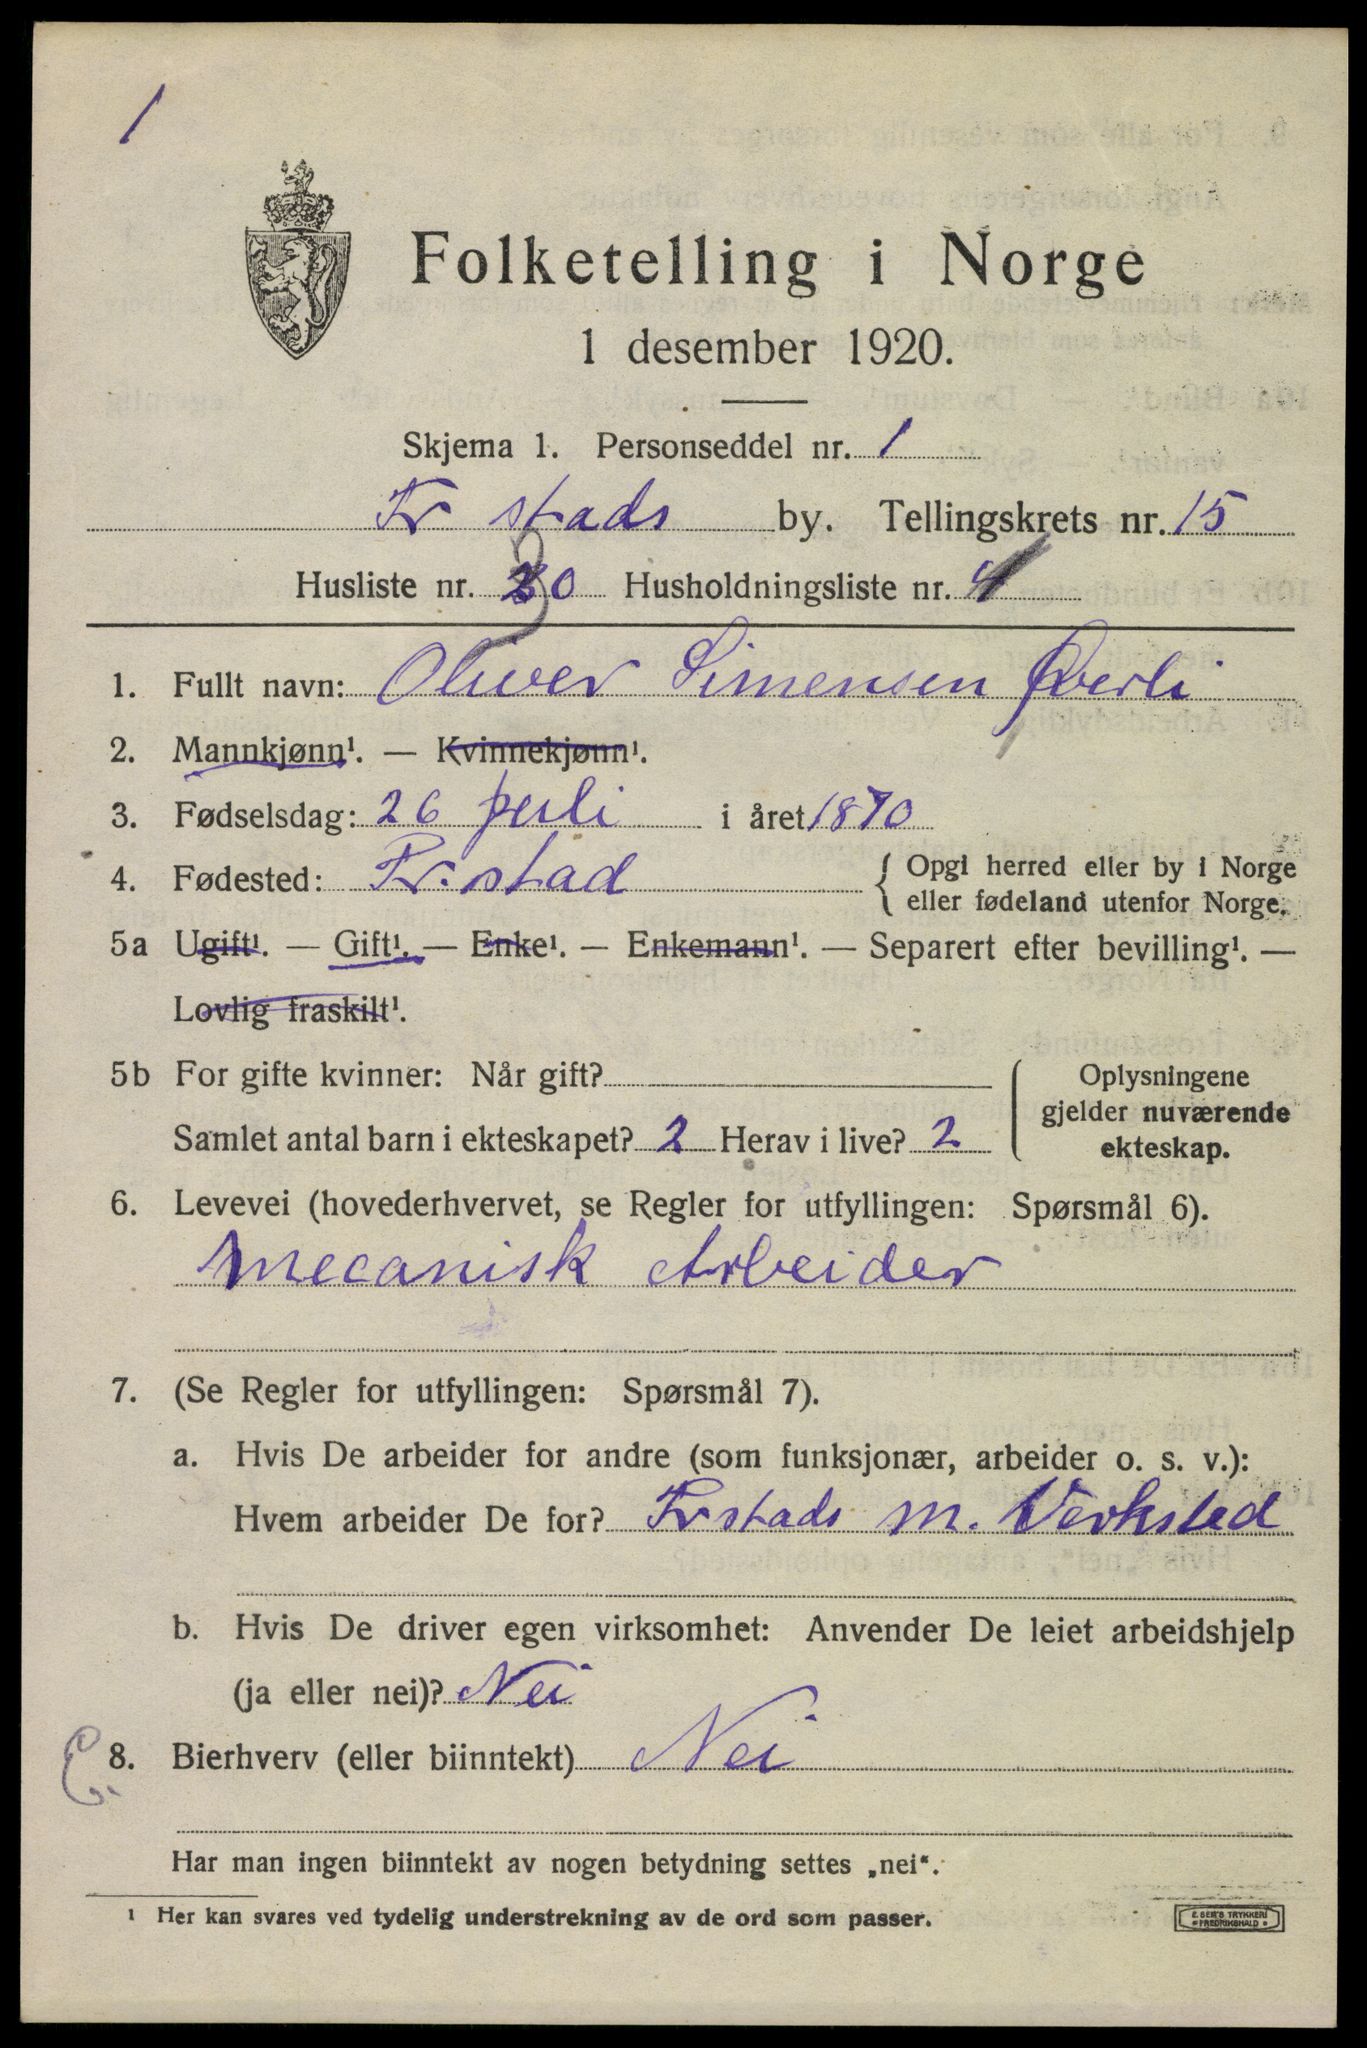 1
Folketelling i Norge
1 desember 1920.
Skjema 1. Personseddel nr. 1
Fr stads by. Tellingskrets nr. 15
Husliste nr. 30 Husholdningsliste nr. 4
1. Fullt navn: Oliver Simensen Øverli
2. Mannkjønn¹. — Kvinnekjønn¹.
3. Fødselsdag: 26 i året 1870
4. Fødested: Fr. stad { Opgi herred eller by i Norge
eller fødeland utenfor Norge.
5a Ugift¹. — Gift¹. — Enke¹. — Enkemann¹. — Separert efter bevilling¹. —
Lovlig fraskilt¹.
5b For gifte kvinner: Når gift? Oplysningene
gjelder nuværende
Samlet antal barn i ekteskapet? 2 Herav i live? 2 ekteskap.
6. Levevei (hovederhvervet, se Regler for utfyllingen: Spørsmål 6).
Mecanisk Arbeider
7. (Se Regler for utfyllingen: Spørsmål 7).
a. Hvis De arbeider for andre (som funksjonær, arbeider o. s. v.):
Hvem arbeider De for? Frstads m. Verksted
b. Hvis De driver egen virksomhet: Anvender De leiet arbeidshjelp
(ja eller nei)? Nei
8. Bierhverv (eller biinntekt) Nei
Har man ingen biinntekt av nogen betydning settes „nei".
¹ Her kan svares ved tydelig understrekning av de ord som passer.
E. SEM'S TRYKKERI
FREDRIKSHALD